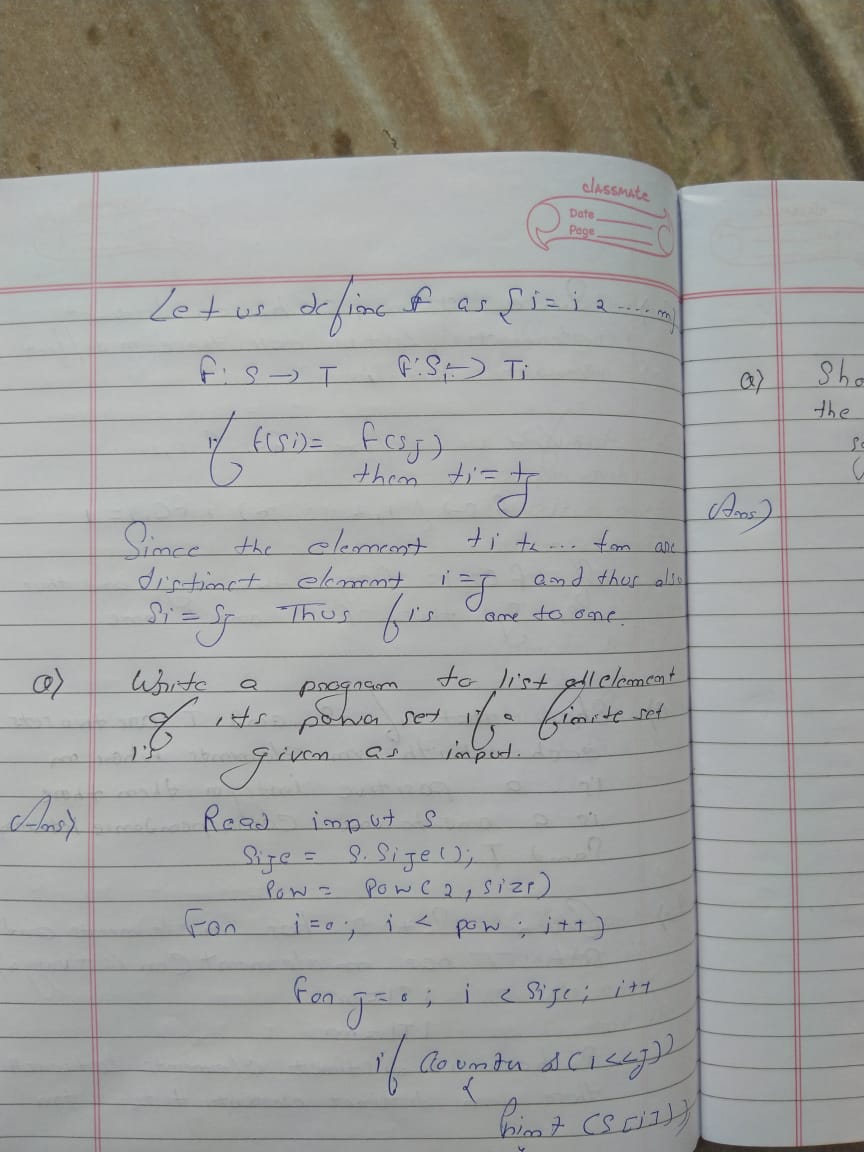 classmate
Date
Page
Let us define f as { i = i 2 ..... m}
f: S → T f: Si → Ti
if f(Si) = f(Sj)
then ti = tj
Since the element ti t2 ... tm are
distinct element i = j and thus also
Si = Sj Thus f is one to one.
Q) Write a program to list all element
of its power set if a finite set
is given as input.
Ans) Read input S
Size = S.Size();
Pow = Pow(2, size)
For i=0; i < pow; i++)
For j=0; i < Size; i++
if (Counter & (1<<j))
{
Print (S[i]))
Q) Sho
the
Ans)